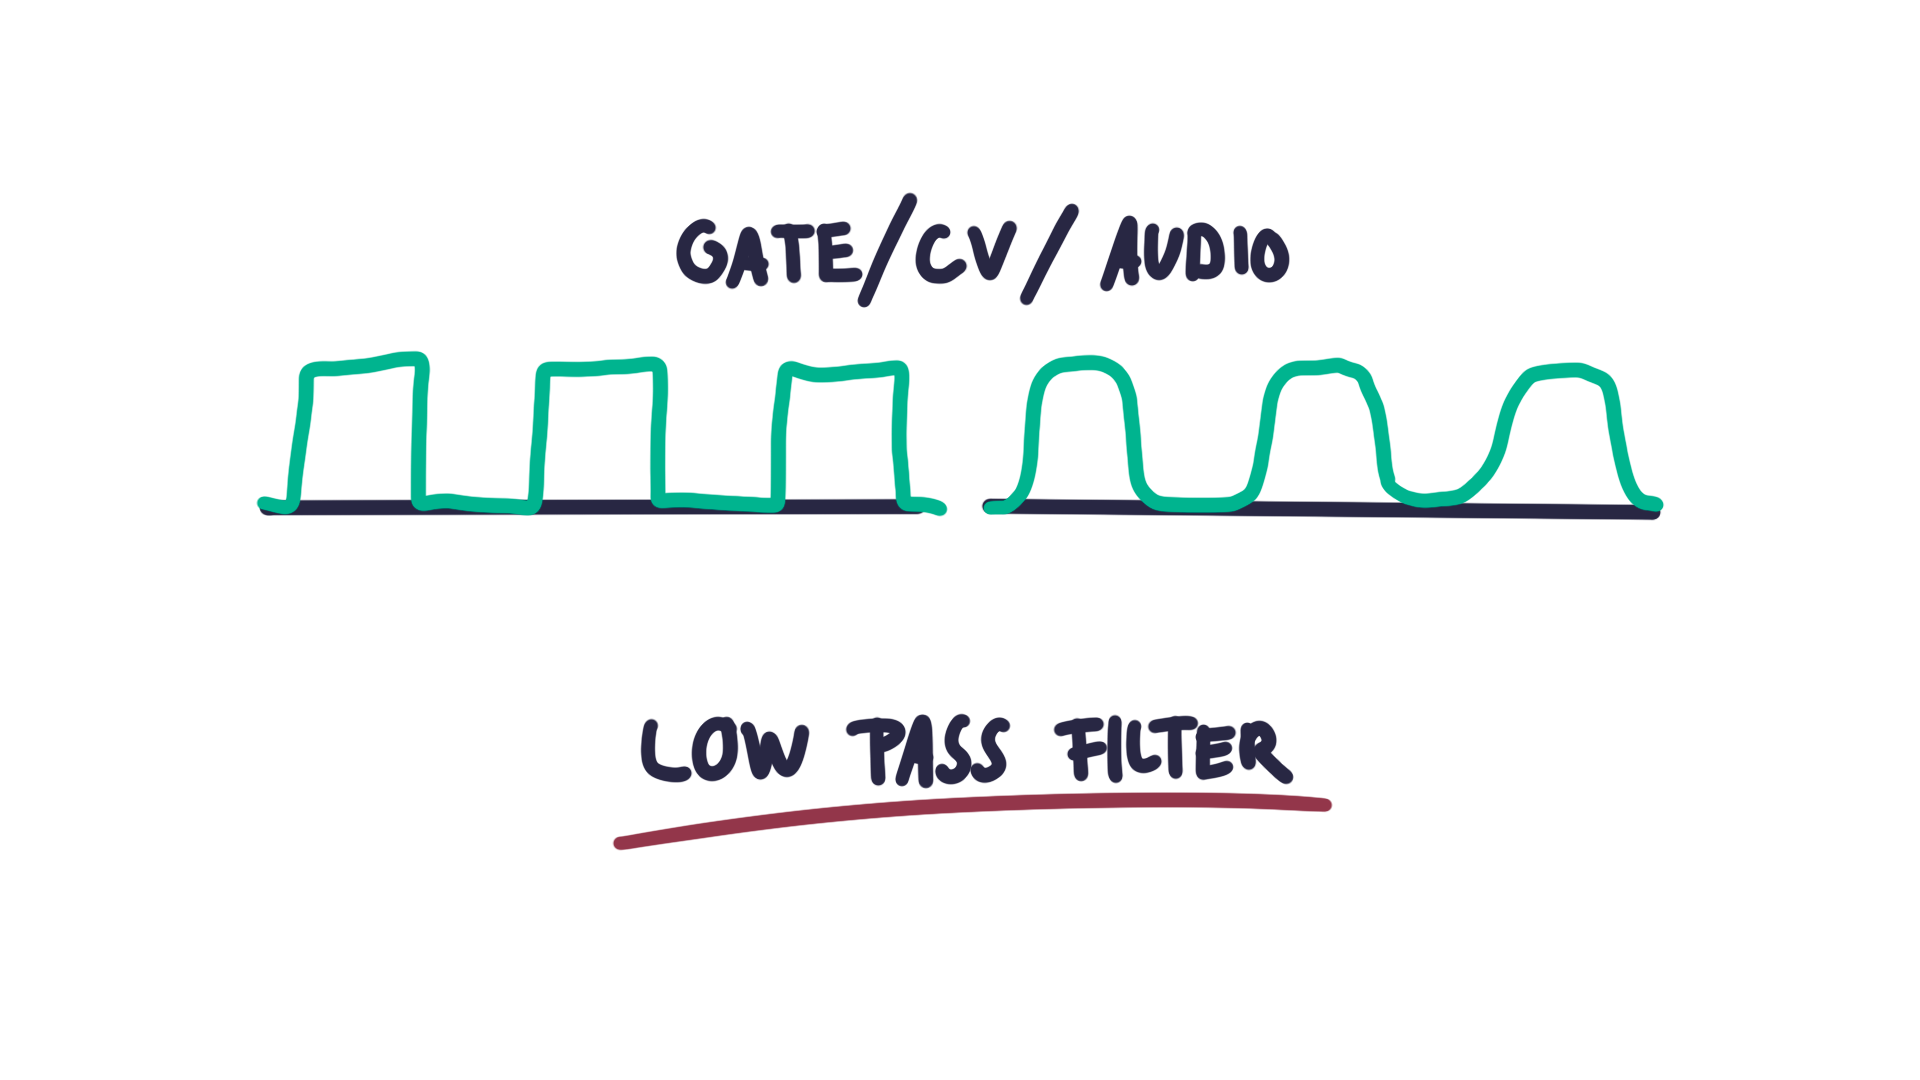 GATE/CV/AUDIO
LOW PASS FILTER